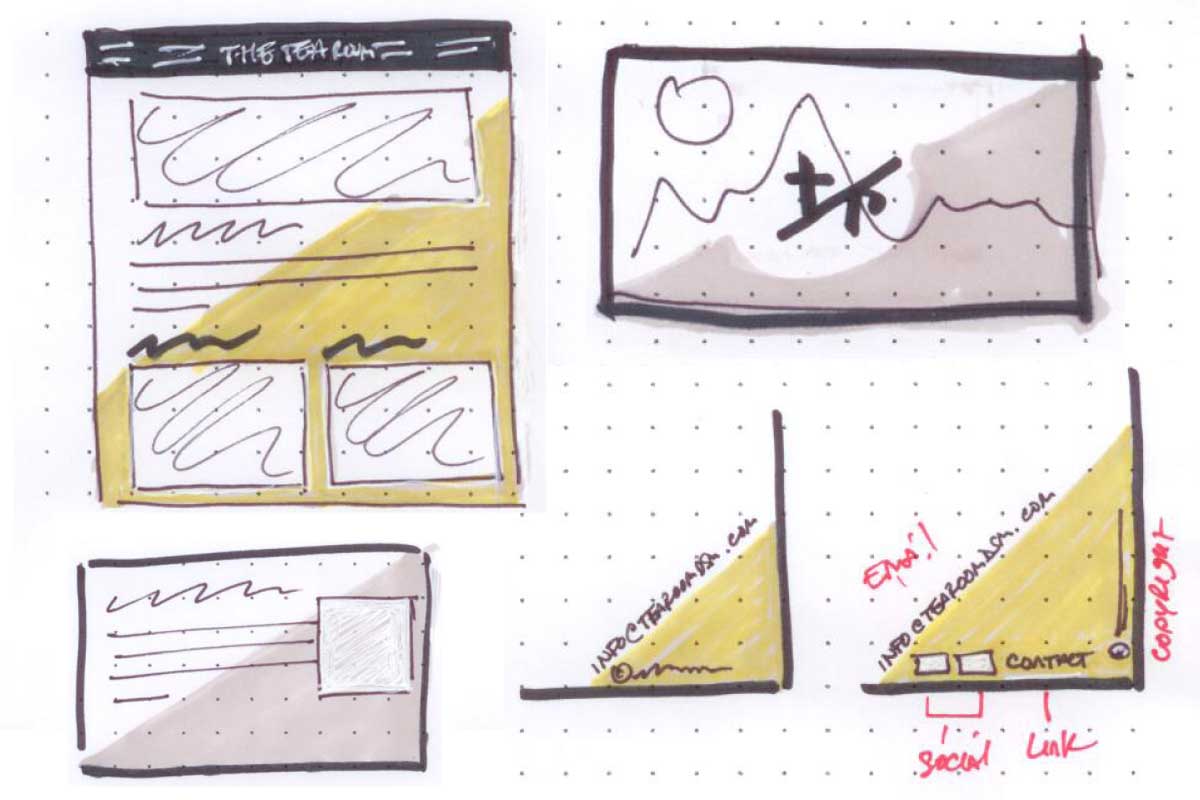 THE TEA ROOM
INFO@TEAROOMDSM.COM
©
EMAIL
INFO@TEAROOMDSM.COM
CONTACT
COPYRIGHT
SOCIAL
LINK